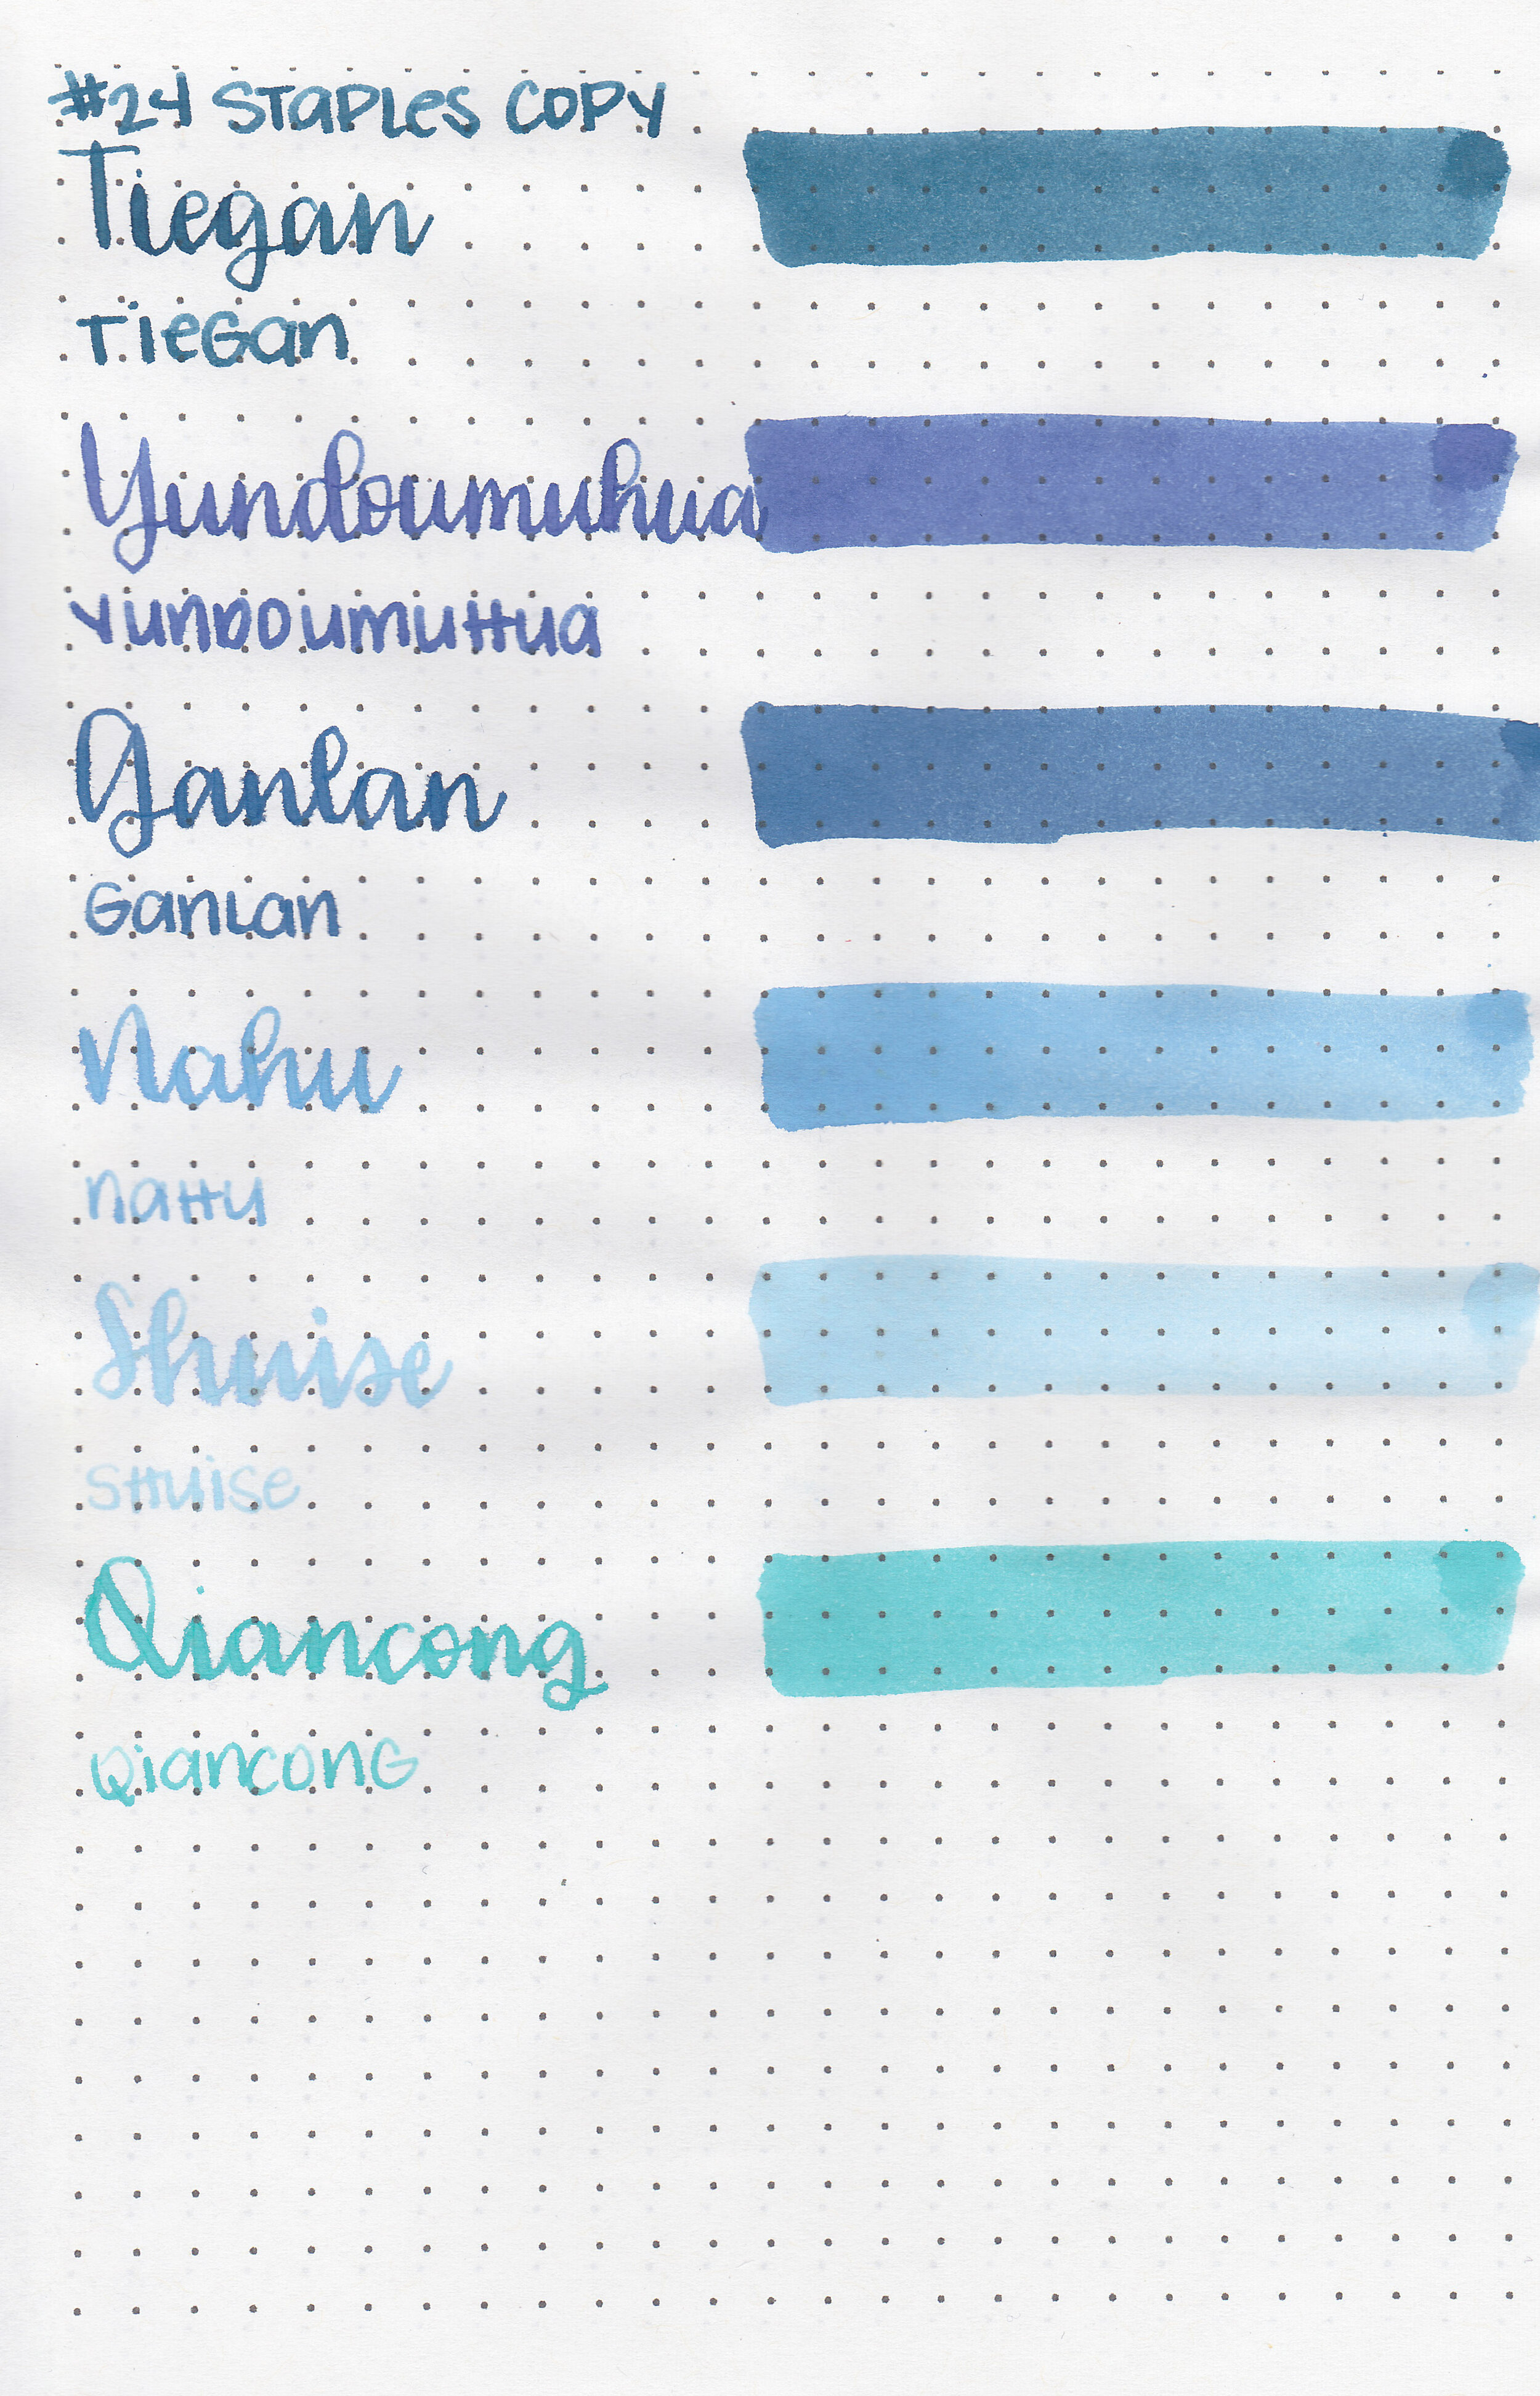 #24 Staples Copy
Tiegan
Tiegan
Yundoumuhua
Yundoumuhua
Ganlan
Ganlan
Nahu
Nahu
Shuise
Shuise
Qiancong
Qiancong